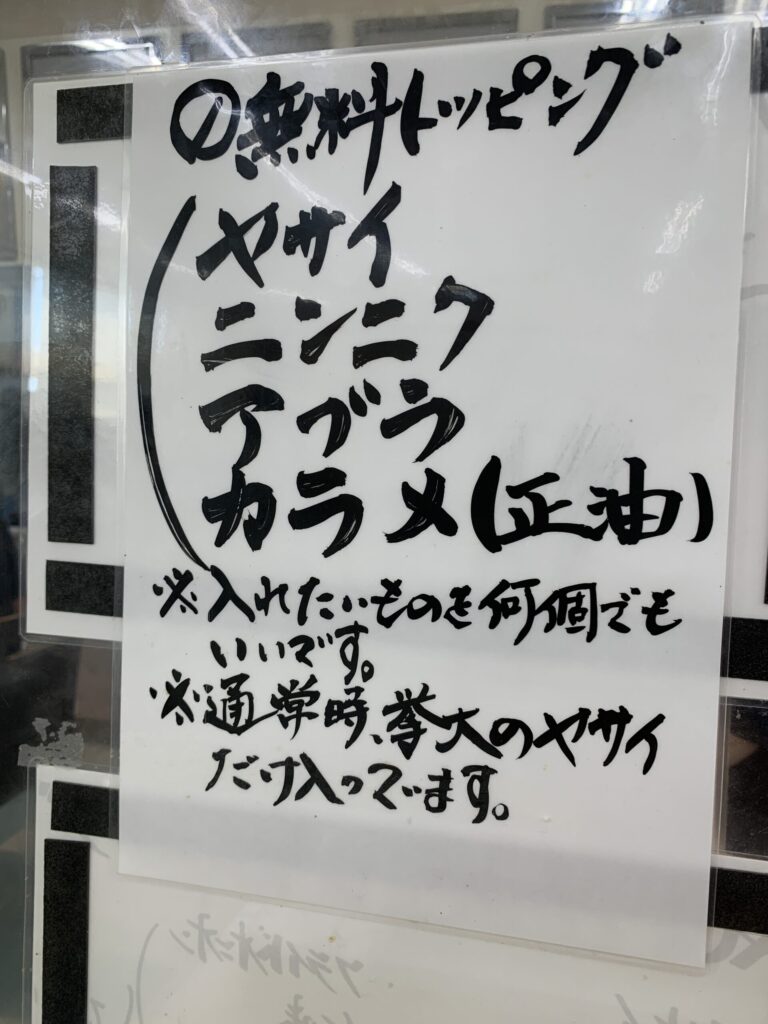 の無料トッピング
ヤサイ
ニンニク
アブラ
カラメ(正油)
※入れたいものを何個でも
いいです。
※通常時、拳大のヤサイ
だけ入っています。